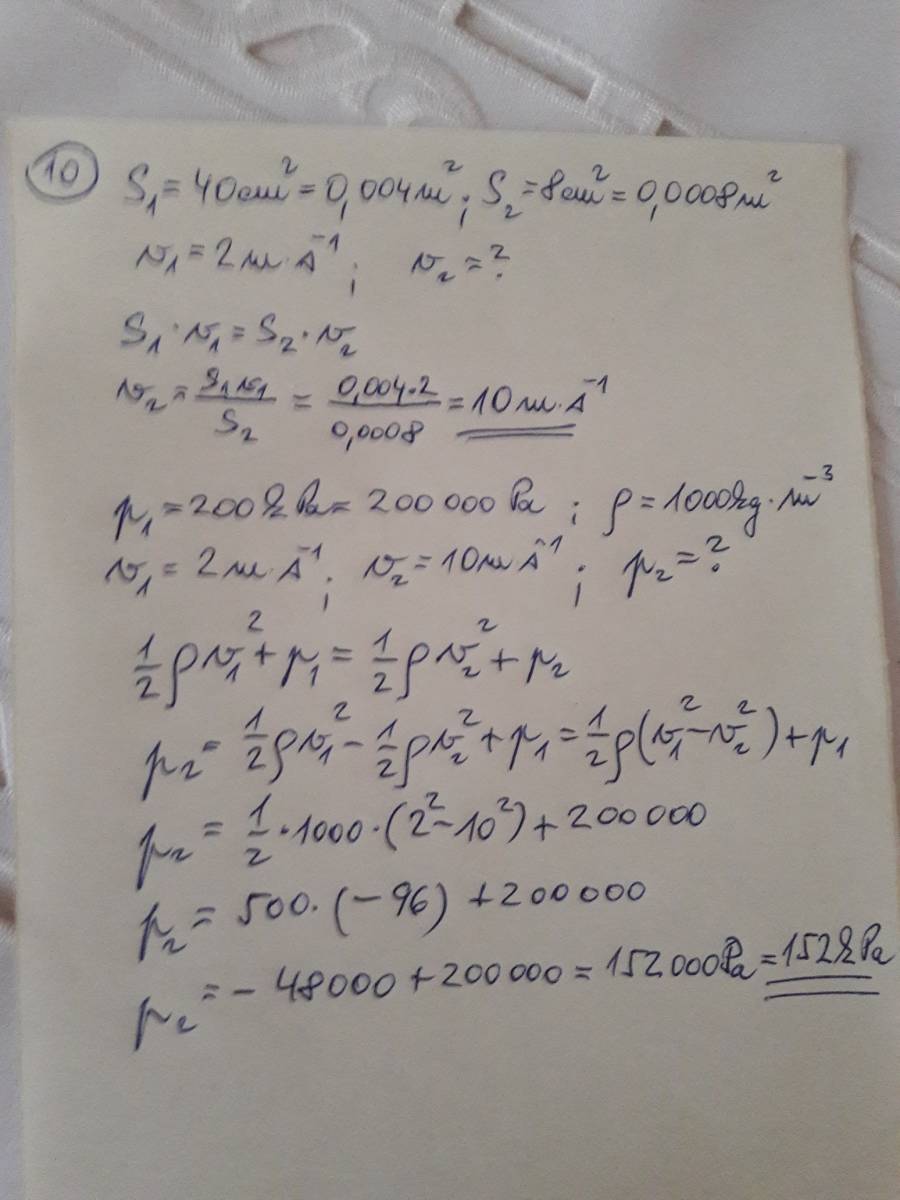 10 S₁ = 40 cm² = 0,004 m² ; S₂ = 8 cm² = 0,0008 m²
v₁ = 2 m·s⁻¹ ; v₂ = ?
S₁ · v₁ = S₂ · v₂
v₂ = S₁v₁/S₂ = 0,004·2/0,0008 = 10 m·s⁻¹
p₁ = 200 kPa = 200 000 Pa ; ρ = 1000 kg·m⁻³
v₁ = 2 m·s⁻¹ ; v₂ = 10 m·s⁻¹ ; p₂ = ?
1/2 ρv₁² + p₁ = 1/2 ρv₂² + p₂
p₂ = 1/2 ρv₁² - 1/2 ρv₂² + p₁ = 1/2 ρ(v₁² - v₂²) + p₁
p₂ = 1/2 · 1000 · (2² - 10²) + 200 000
p₂ = 500 · (-96) + 200 000
p₂ = - 48000 + 200 000 = 152 000 Pa = 152 kPa